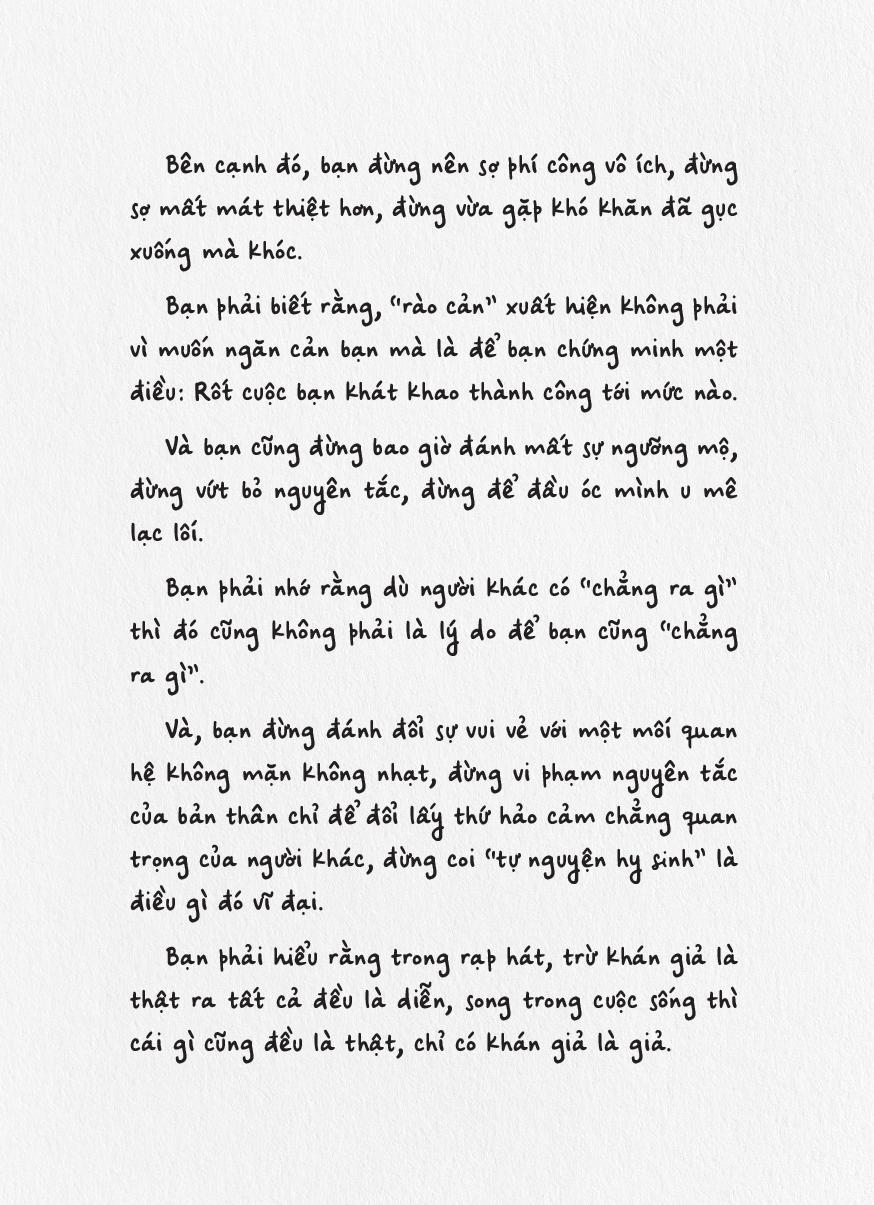 Bên cạnh đó, bạn đừng nên sợ phí công vô ích, đừng
sợ mất mát thiệt hơn, đừng vừa gặp khó khăn đã gục
xuống mà khóc.
Bạn phải biết rằng, “rào cản” xuất hiện không phải
vì muốn ngăn cản bạn mà là để bạn chứng minh một
điều: Rốt cuộc bạn khát khao thành công tới mức nào.
Và bạn cũng đừng bao giờ đánh mất sự ngưỡng mộ,
đừng vứt bỏ nguyên tắc, đừng để đầu óc mình u mê
lạc lối.
Bạn phải nhớ rằng dù người khác có “chẳng ra gì”
thì đó cũng không phải là lý do để bạn cũng “chẳng
ra gì”.
Và, bạn đừng đánh đổi sự vui vẻ với một mối quan
hệ không mặn không nhạt, đừng vi phạm nguyên tắc
của bản thân chỉ để đổi lấy thứ hảo cảm chẳng quan
trọng của người khác, đừng coi “tự nguyện hy sinh” là
điều gì đó vĩ đại.
Bạn phải hiểu rằng trong rạp hát, trừ khán giả là
thật ra tất cả đều là diễn, song trong cuộc sống thì
cái gì cũng đều là thật, chỉ có khán giả là giả.